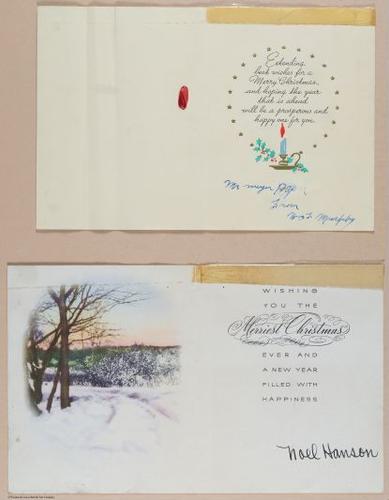 Extending
best wishes for a
Merry Christmas,
and hoping the year
that is ahead
will be a prosperous and
happy one for you.
Mr meyer
From
WISHING
YOU THE
Merriest Christmas
EVER AND
A NEW YEAR
FILLED WITH
HAPPINESS
Noel Hanson